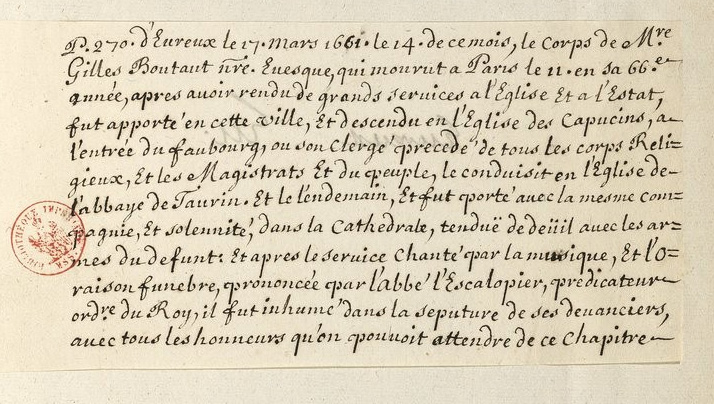 P. 270. d'Eureux le 17. Mars 1661. le 14. de ce mois, le Corps de M.re
Gilles Boutaut n̄re. Euesque, qui mourut a Paris le 11. en sa 66.e
année, apres auoir rendu de grands seruices a l'Eglise Et a l'Estat,
fut apporté en cette Ville, Et descendu en l'Eglise des Capucins, a
l'entrée du faubourg, ou son Clergé precedé de tous les corps Reli=
gieux, Et les Magistrats Et du peuple, le conduisit en l'Eglise de
l'abbaye de Taurin. Et le lendemain, Et fut porté auec la mesme com=
pagnie, Et solennité, dans la Cathedrale, tenduë de deüil auec les ar=
mes du defunt: Et apres le seruice Chanté par la musique, Et l'O=
raison funebre, prononcée par l'abbé l'Escalopier, predicateur
ord.re du Roy, il fut inhumé dans la seputure de ses deuanciers,
auec tous les honneurs qu'on pouuoit attendre de ce Chapitre
BIBLIOTHÈQUE